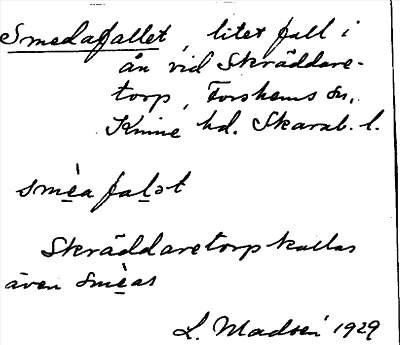 Smedafallet, litet fall i
ån vid Skräddare-
torp, Forshems sn,
Kinne hd. Skarab. l.
smèa falət
Skräddaretorp kallas
även smèas
L. Madsén 1929